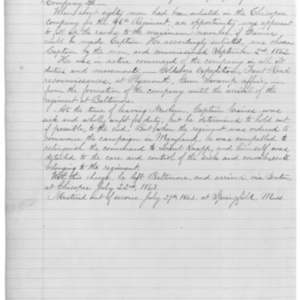 Company
When about eighty men had been enlisted in the Chicopee
company for the 46th Regiment an opportunity was apparent
to fill up the ranks to the maximum number if Trainer
would be made Captain. He accordingly enlisted and chosen
Captain by the men. Commissioned September 2nd 1862.
He was in active command of the company in all its
duties and movements – Goldsboro Expedition, Trent Road
reconnoissances, at Plymouth, affair,
from the formation of the company until the arrival of the
regiment at Baltimore.
At the time of leaving Newbern Captain was
sick and wholly unfit for duty, but he determined to hold out
if possible to the end. But when the regiment was ordered to
the campaign in Maryland, he was compelled to
relinquish the command to Lieut. and himself was
detailed to the care and control of the sick and convalescents
belonging to the regiment.
With this charge he left Baltimore and arrived via Boston
at Chicopee July 22nd, 1863.
Mustered out of service July 29th 1863, at Springfield, Mass.